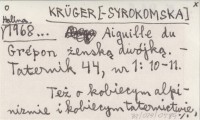 KRÜGER [-SYROKOMSKA]
Halina
1968... Aiguille du
Grépon żeńską dwójką. –
Taternik 44, nr 1: 10-11.
Też o kobiecym alpi-
nizmie i kobiecym taternictwie.